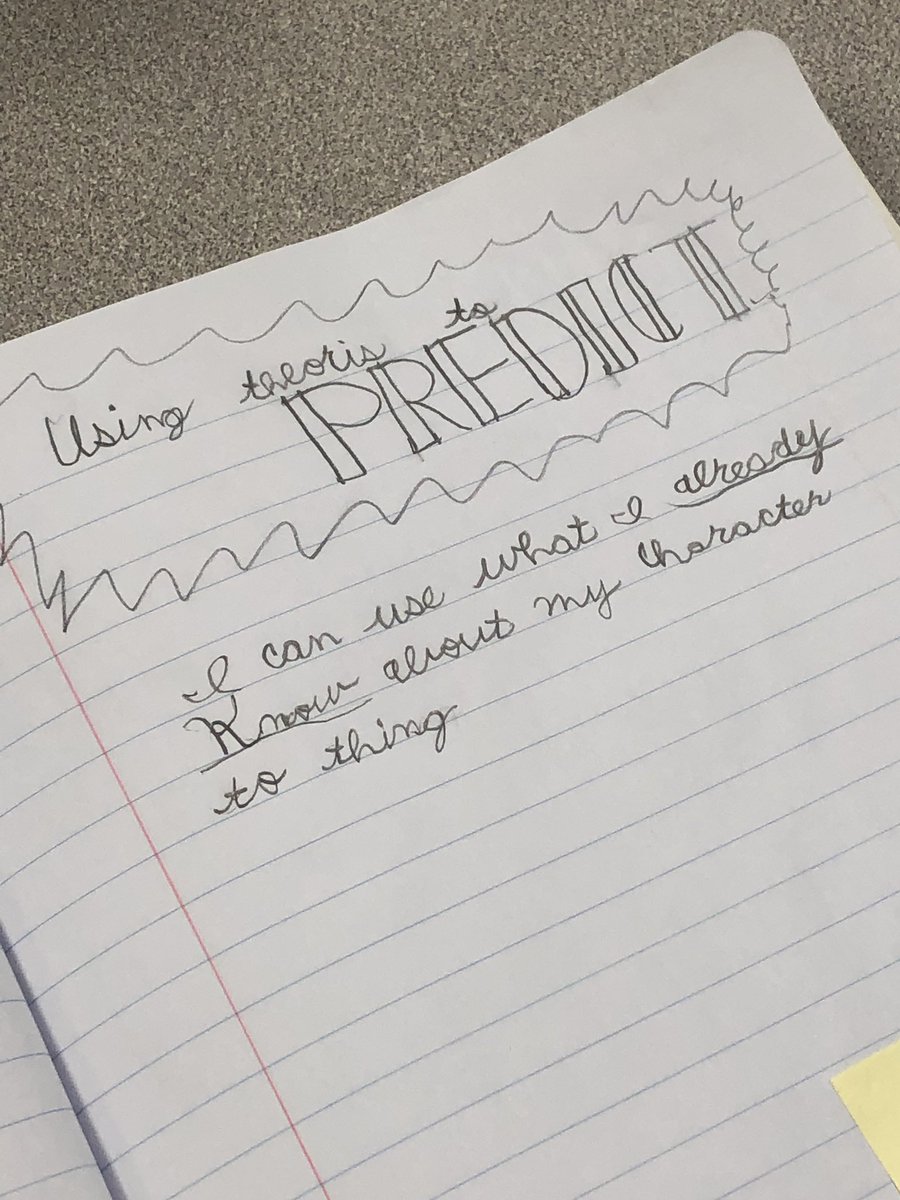 Using theoris to PREDICT
I can use what I already
Know about my character
to thing